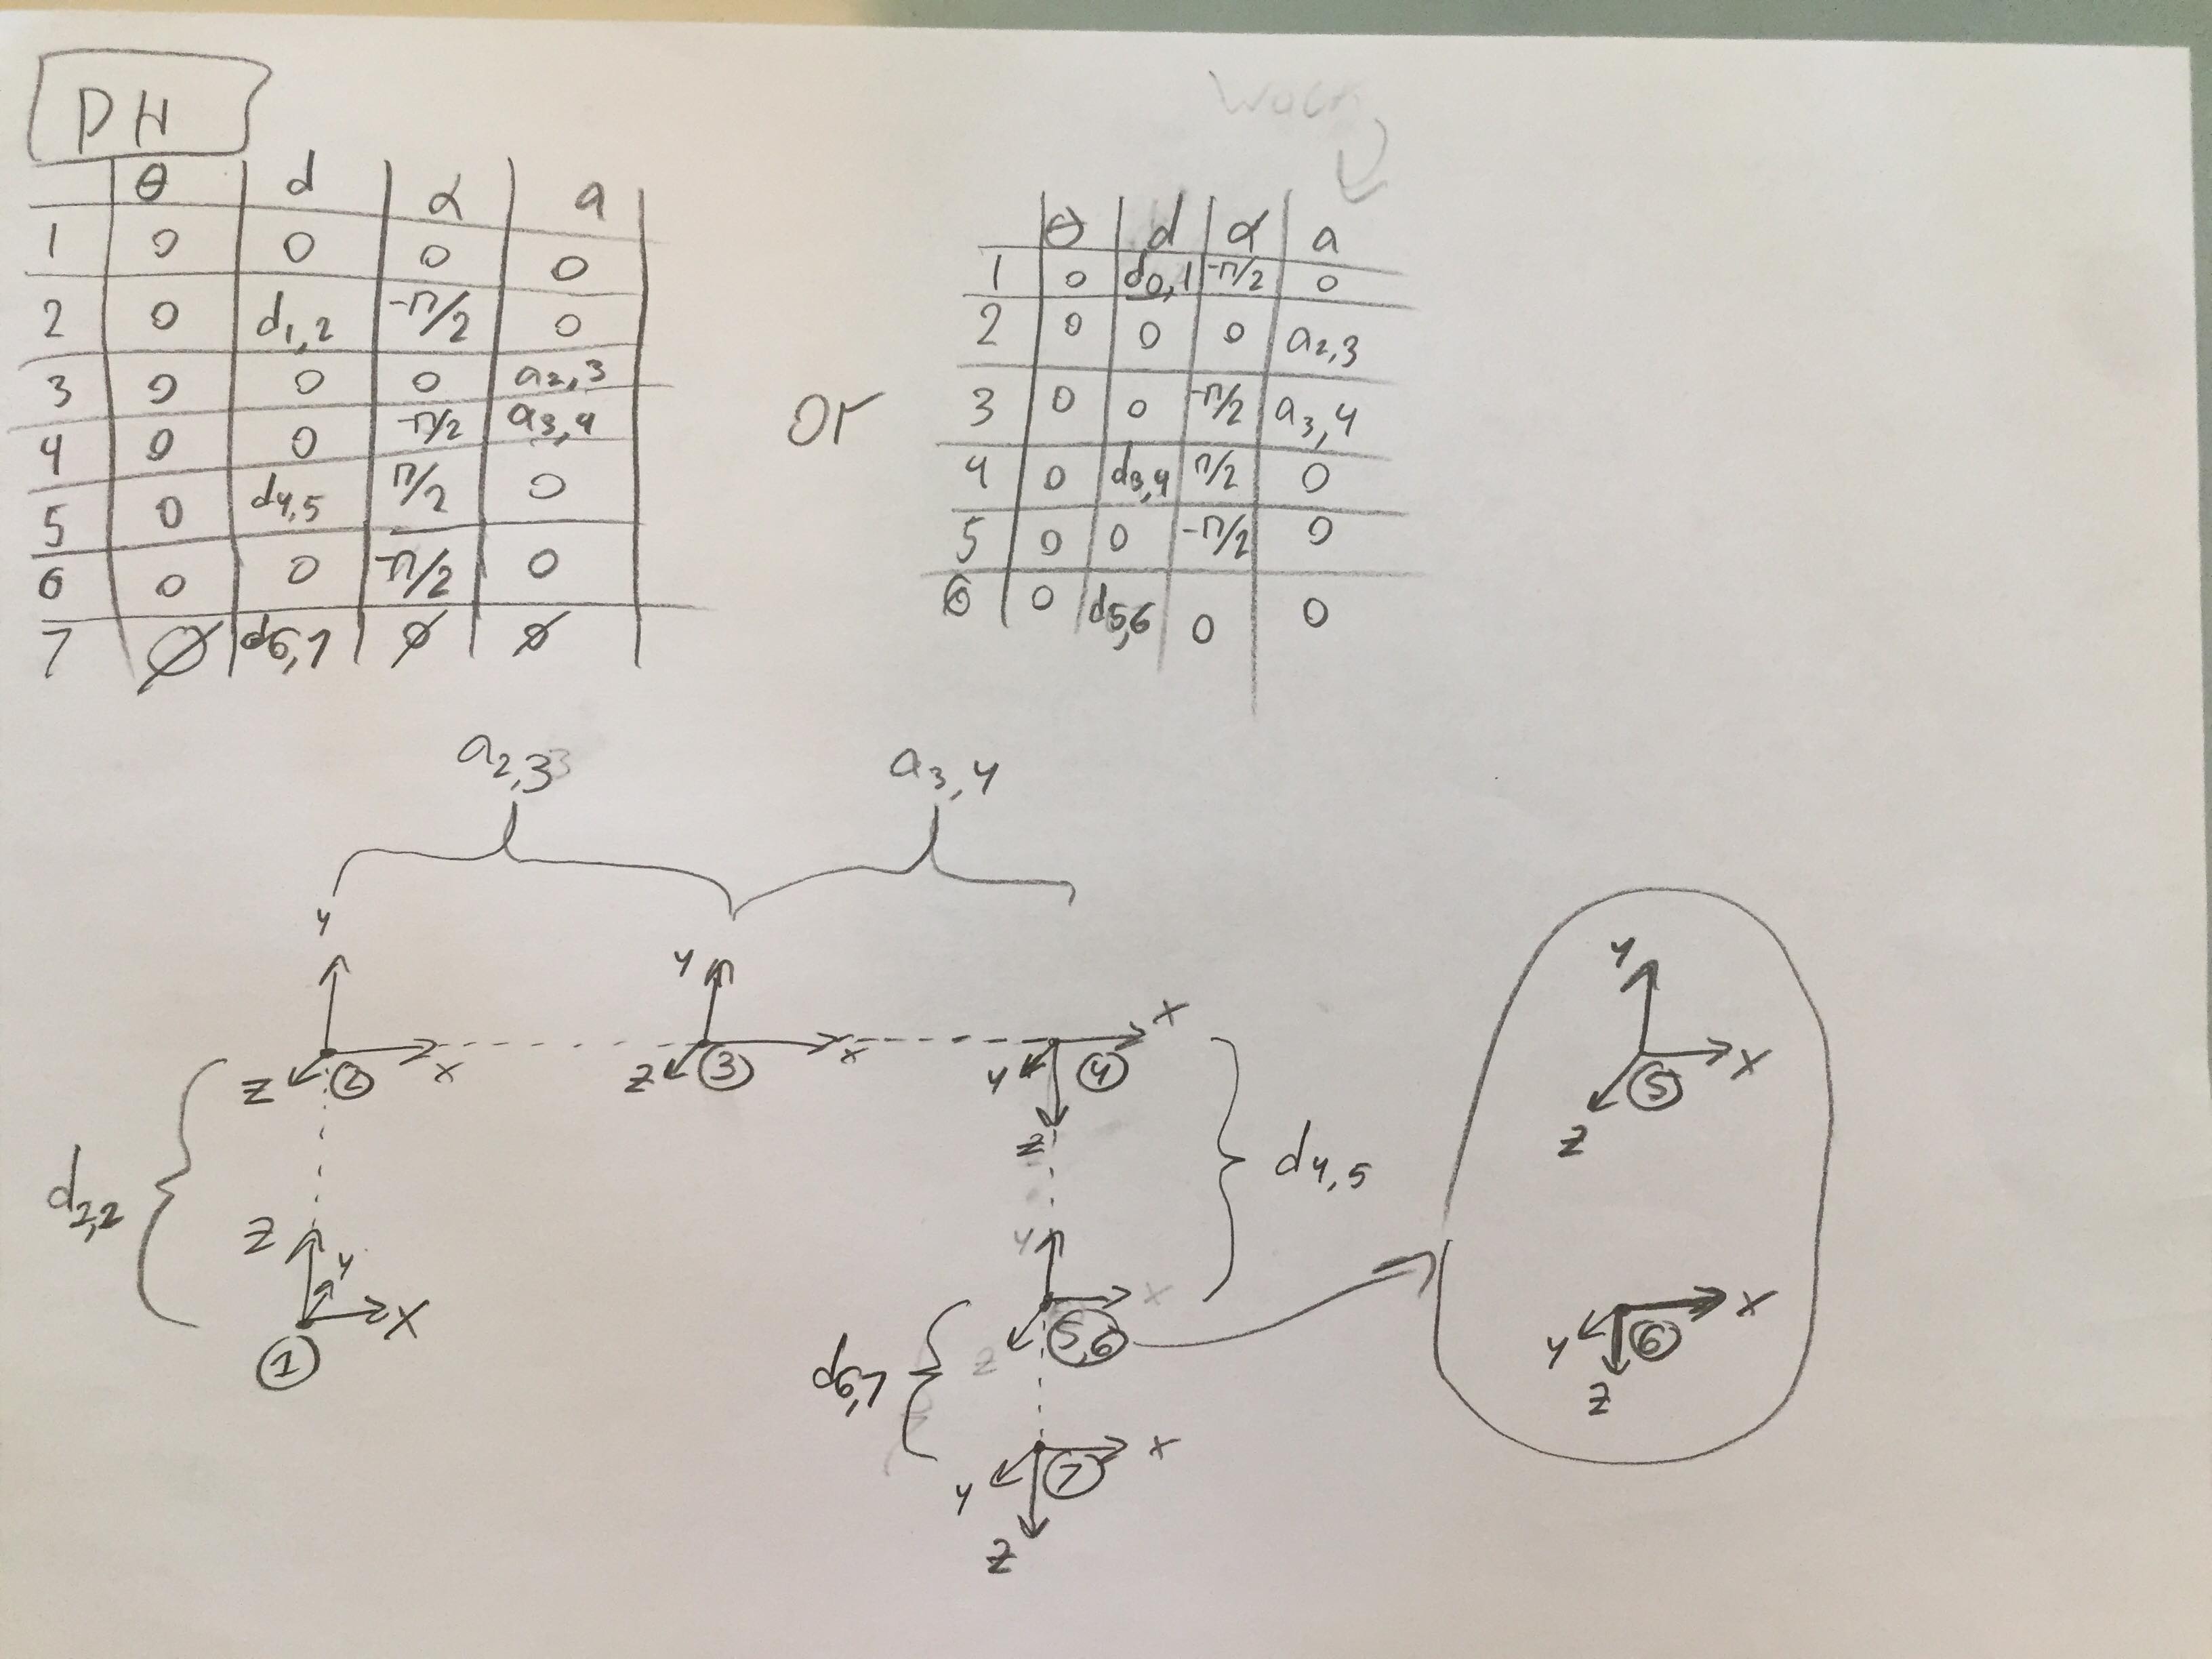 DH
θ d α a
1 0 0 0 0
2 0 d1,2 -π/2 0
3 0 0 0 a2,3
4 0 0 -π/2 a3,4
5 0 d4,5 π/2 0
6 0 0 -π/2 0
7 Ø d6,7 Ø Ø
or
Wack
θ d α a
1 0 d0,1 -π/2 0
2 0 0 0 a2,3
3 0 0 -π/2 a3,4
4 0 d3,4 π/2 0
5 0 0 -π/2 0
6 0 d5,6 0 0
a2,3 a3,4
y y y
z 2 x z 3 x y 4 x z 5 x
z
d2,2 d4,5
z y x
1
y x
z 5,6
y 6 x
z
d6,7
y 7 x
z